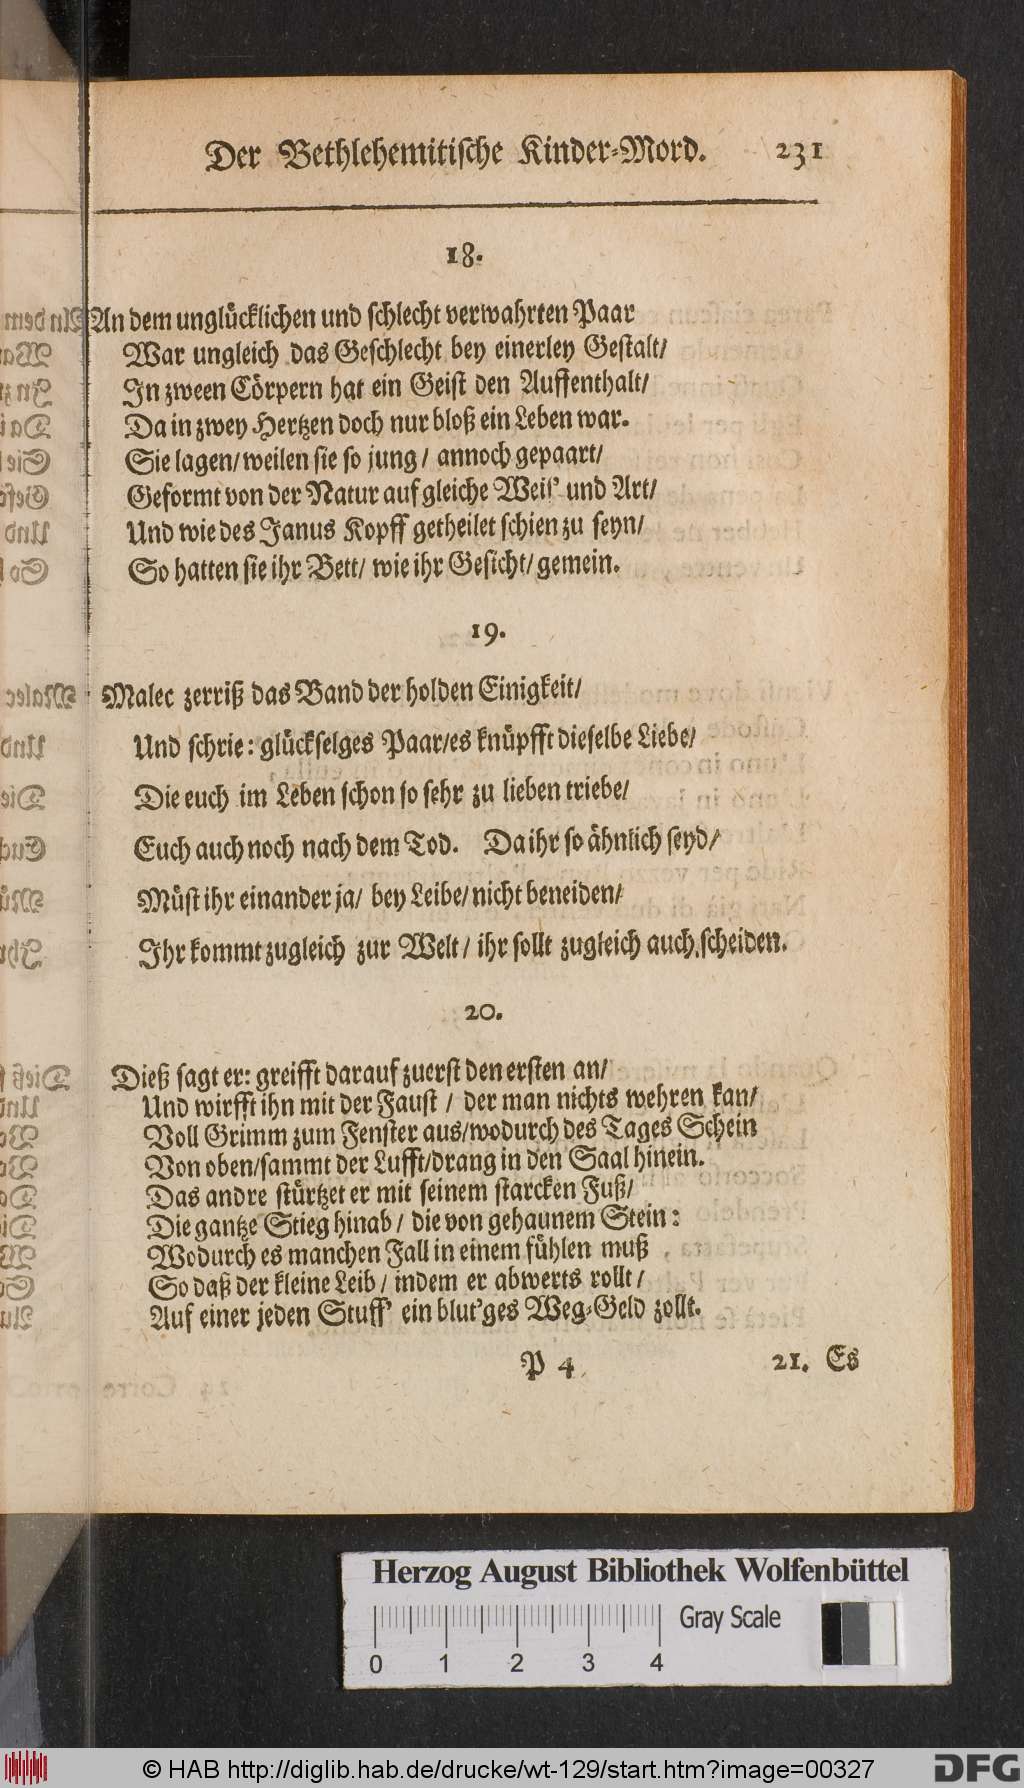 Der Bethlehemitische Kinder-Mord. 231
18.
An dem unglücklichen und schlecht verwahrten Paar
War ungleich das Geschlecht bey einerley Gestalt/
In zween Cörpern hat ein Geist den Auffenthalt/
Da in zwey Hertzen doch nur bloß ein Leben war.
Sie lagen/ weilen sie so jung/ annoch gepaart/
Geformt von der Natur auf gleiche Weis' und Art/
Und wie des Janus Kopff getheilet schien zu seyn/
So hatten sie ihr Bett/ wie ihr Gesicht/ gemein.
19.
Malec zerriß das Band der holden Einigkeit/
Und schrie: glückselges Paar/ es knüpfft dieselbe Liebe/
Die euch im Leben schon so sehr zu lieben triebe/
Euch auch noch nach dem Tod. Da ihr so ähnlich seyd/
Müst ihr einander ja/ bey Leibe/ nicht beneiden/
Ihr kommt zugleich zur Welt/ ihr sollt zugleich auch scheiden.
20.
Dieß sagt er: greifft darauf zuerst den ersten an/
Und wirfft ihn mit der Faust/ der man nichts wehren kan/
Voll Grimm zum Fenster aus/ wodurch des Tages Schein
Von oben/ sammt der Lufft/ drang in den Saal hinein.
Das andre stürtzet er mit seinem starcken Fuß/
Die gantze Stieg hinab/ die von gehaunem Stein:
Wodurch es manchen Fall in einem fühlen muß
So daß der kleine Leib/ indem er abwerts rollt/
Auf einer jeden Stuff' ein blut'ges Weg-Geld zollt.
P 4 21. Es
Herzog August Bibliothek Wolfenbüttel
Gray Scale
0 1 2 3 4
© HAB http://diglib.hab.de/drucke/wt-129/start.htm?image=00327
DFG